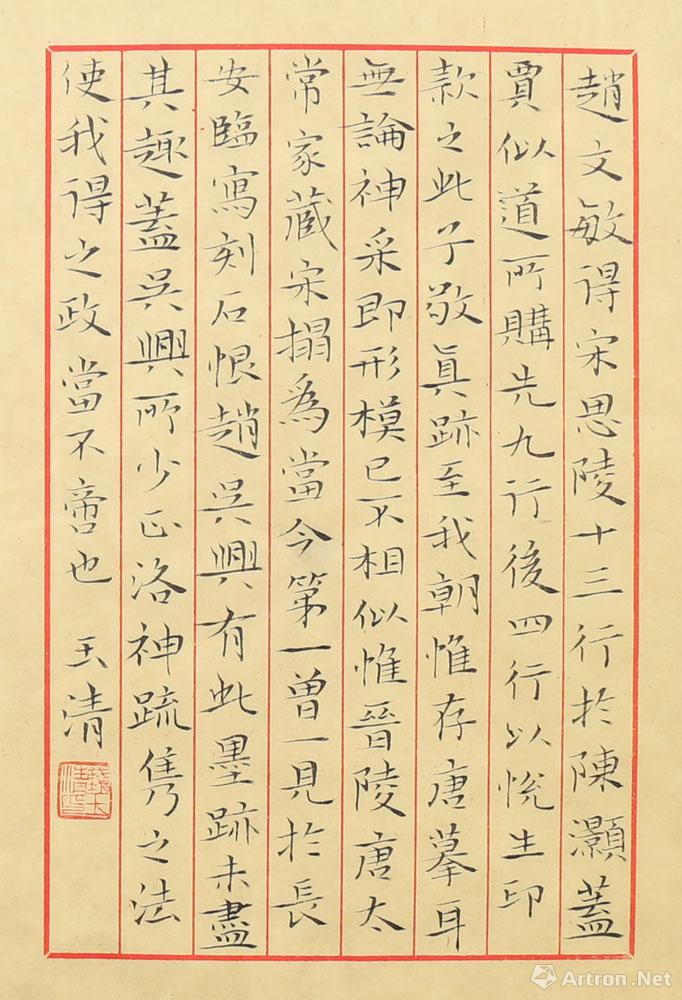 趙文敏得宋思陵十三行於陳灝蓋
賈似道所購先九行後四行以悅生印
款之此子敬眞跡至我朝惟存唐摹耳
無論神采即形模已不相似惟晉陵唐太
常家藏宋搨爲當今第一曾一見於長
安臨寫刻石恨趙吳興有此墨跡未盡
其趣蓋吳興所少正洛神疏雋之法
使我得之政當不啻也 玉清
Artron.Net